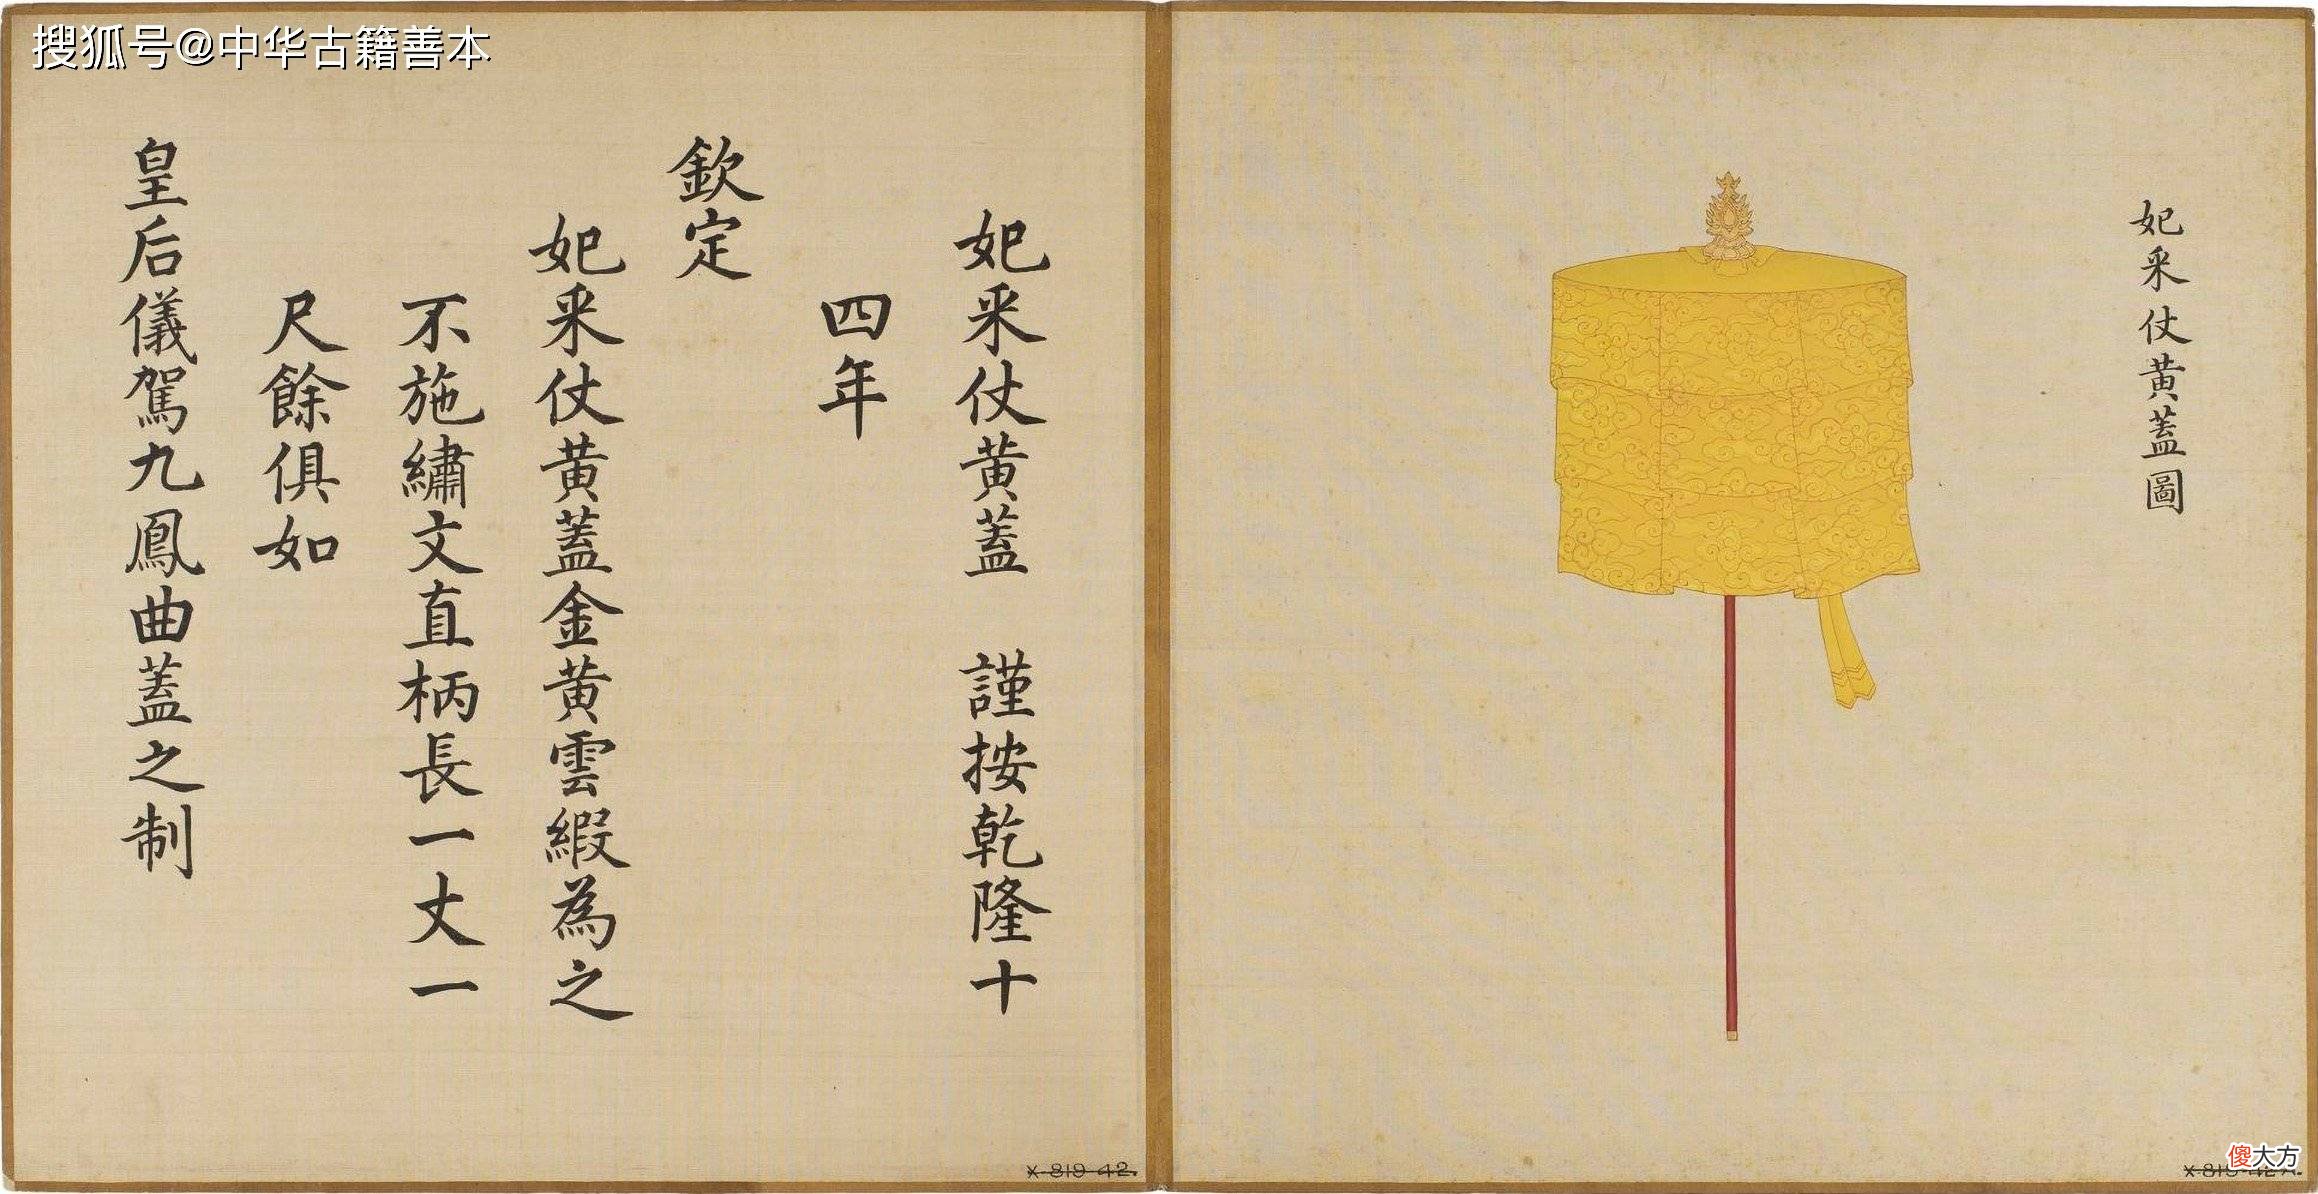 搜狐号@中华古籍善本
妃采仗黄蓋圖
妃采仗黄蓋　謹按乾隆十
四年
欽定
妃采仗黄蓋金黄雲緞為之
不施繡文直柄長一丈一
尺餘俱如
皇后儀駕九鳳曲蓋之制
X-819-42.
傻大方